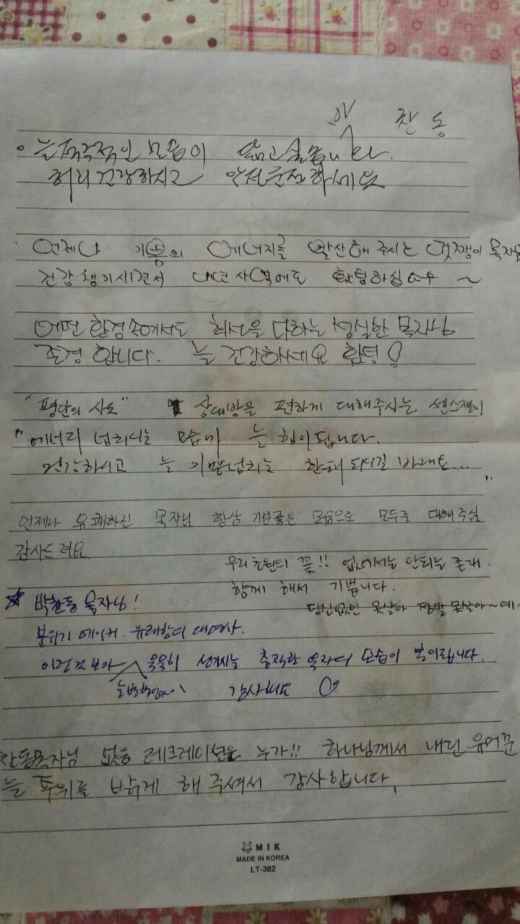 박 찬 동
늘 적극적인 모습이 닮고싶습니다.
허리 건강하시고 안전운전하세요
언제나 기쁨의 에너지를 발산해 주시는 멋쟁이 목자님
건강 챙기시면서 사역에도 화팅하십쇼 ~
어떤 환경속에서도 최선을 다하는 성실한 목자님
존경합니다. 늘 건강하세요 힘텅!
"평안의 사도" 상대방을 편하게 대해주시는 센스쟁이
"에너지 넘치는 모습에 늘 힘이 됩니다.
건강하시고 늘 기쁨넘치는 찬터 되시길 바래요..."
언제나 유쾌하신 목자님 항상 기분좋은 모습으로 모두를 대해주심
감사드려요
우리 초원의 꽃!! 없어서는 안되는 존재.
함께 해서 기쁩니다.
당신없인 못살아 정말 못살아~예
박찬동 목자님!
분위기 메이커. 유쾌함의 대명사.
이런 것보다 묵묵히 섬기는 충직한 목자의 모습이 보여집니다.
감사해요
찬동목자님 없음 레크레이션은 누가!! 하나님께서 내린 유머꾼
늘 주위를 밝게 해 주셔서 감사합니다.
MIK
MADE IN KOREA
LT-382